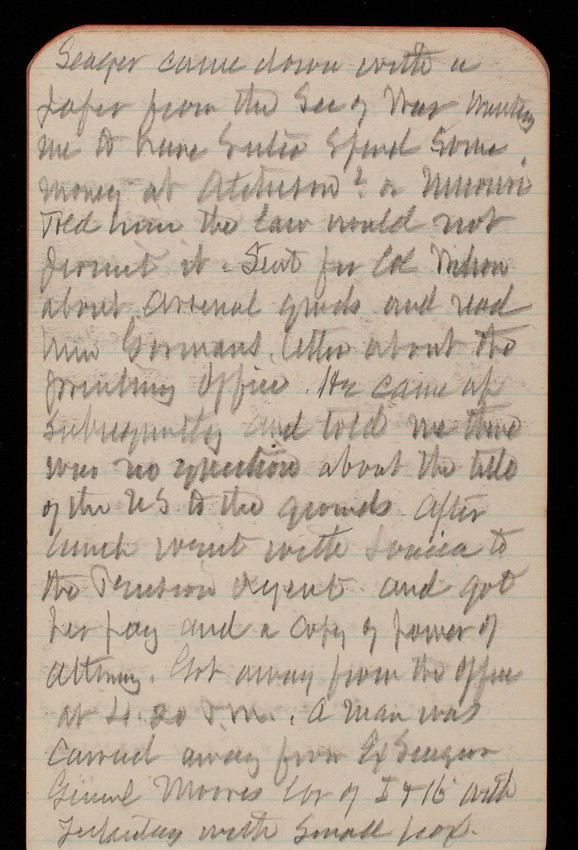 came down with a
paper from the Sec of War wanting
me to have spend some
money at Atchison? or Missouri
Told him the law would not
permit it. Sent for Col Wilson
about Arsenal grounds and read
him Gormans letter about the
printing office. He came up
subsequently and told me there
was no question about the title
of the US to the grounds. After
lunch went with to
the Pension Agent and got
her pay and a copy of power of
attorney. Got away from the office
at 4.20 P.M. A man was
carried away from Ex Surgeon
General Moores Cor of I & 16 with
yesterday with small pox.